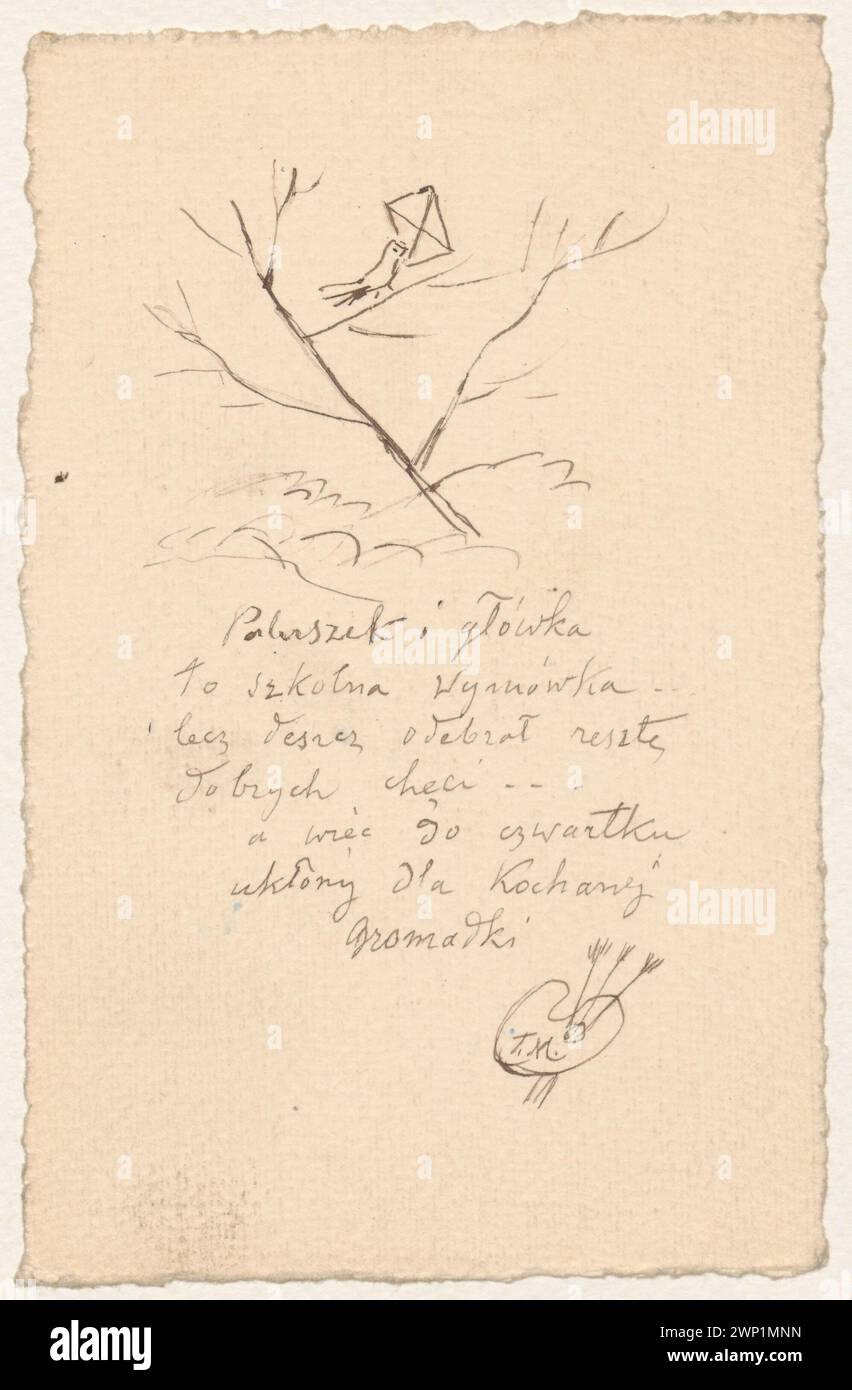 Paluszek i główka
to szkolna wymówka --
lecz deszcz odebrał resztę
dobrych chęci --
a więc do czwartku
ukłony dla Kochanej
gromadki
T.M.
alamy
alamy
alamy
alamy
Image ID: 2WP1MNN
www.alamy.com